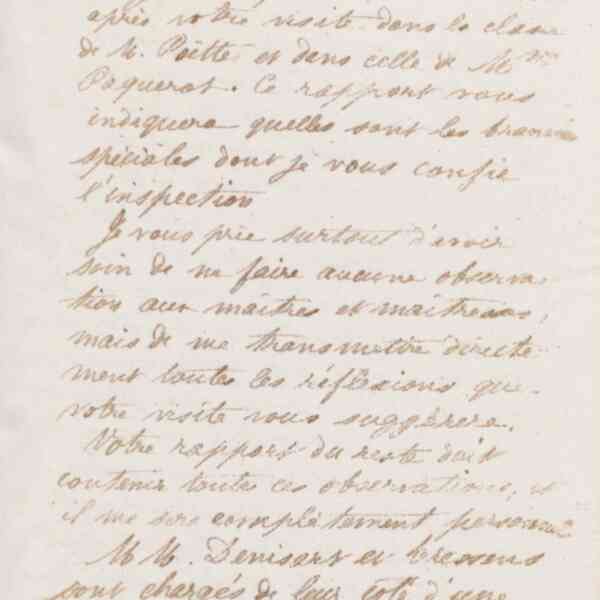 après votre visite dans la classe
de M. Poëtte et dans celle de Mme
Paquerot. Ce rapport vous
indiquera quelles sont les branches
spéciales dont je vous confie
l'inspection
Je vous prie surtout d'avoir
soin de ne faire aucune observa-
tion aux maîtres et maîtresses,
mais de me transmettre directe-
ment toutes les réflexions que
votre visite vous suggèrera.
Votre rapport du reste doit
contenir toutes ces observations, et
il me sera complètement personnel
MM. Denisart et
sont chargés de leur côté d'une